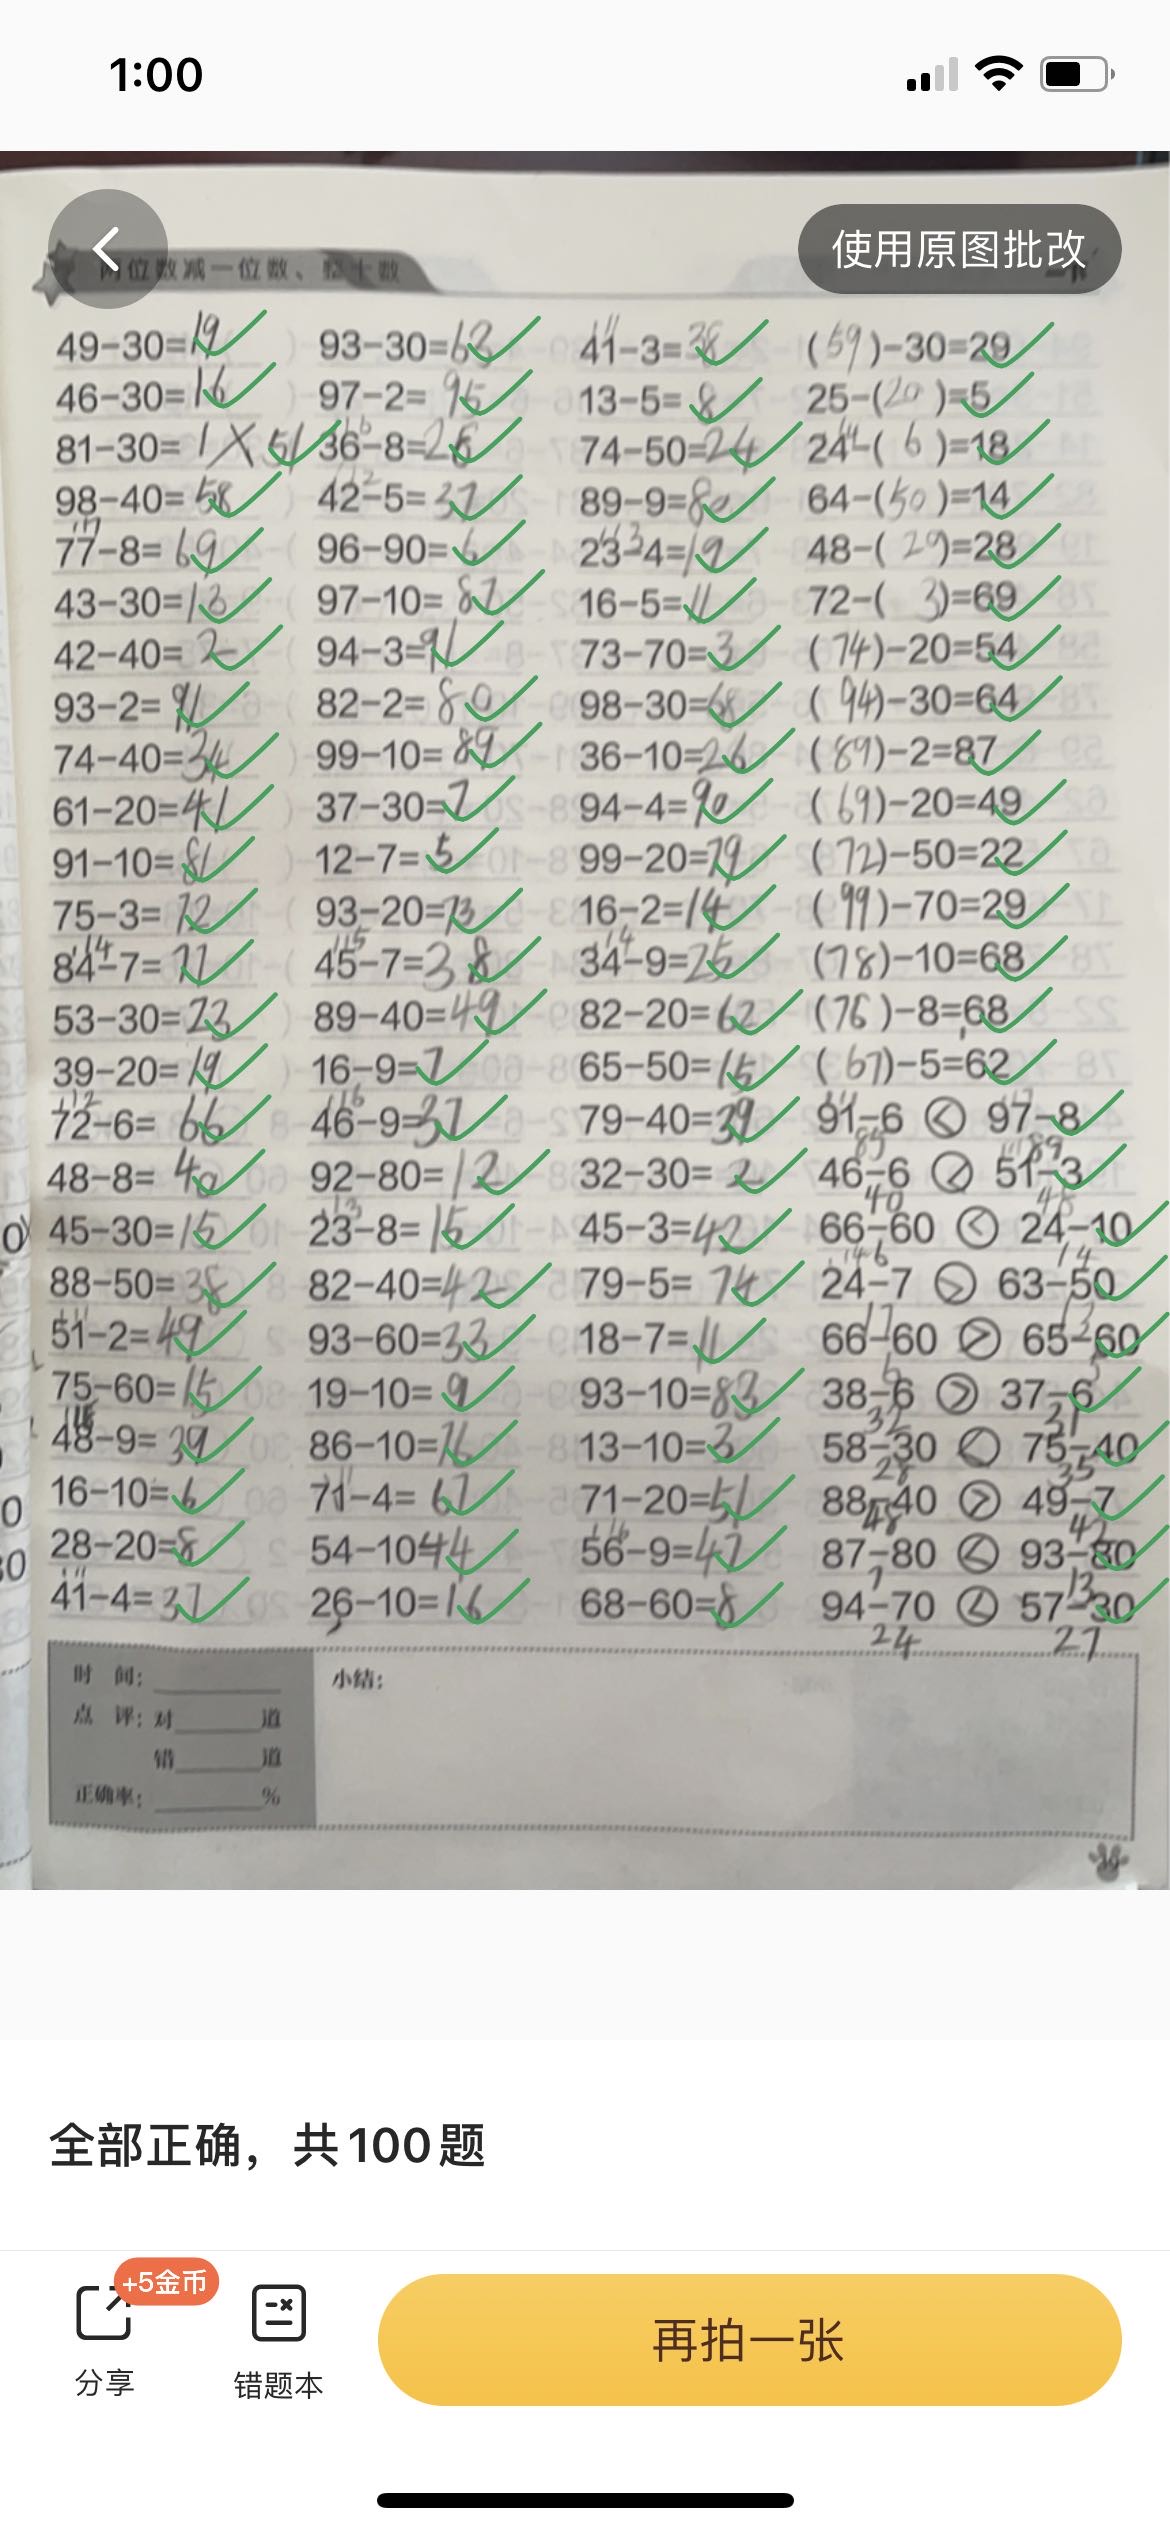 1:00
使用原图批改
两位数减一位数、整十数
49-30=19 93-30=63 41-3=38 (59)-30=29
46-30=16 97-2=95 13-5=8 25-(20)=5
81-30=1╳51 36-8=28 74-50=24 24-(6)=18
98-40=58 42-5=37 89-9=80 64-(50)=14
77-8=69 96-90=6 23-4=19 48-(20)=28
43-30=13 97-10=87 16-5=11 72-(3)=69
42-40=2 94-3=91 73-70=3 (74)-20=54
93-2=91 82-2=80 98-30=68 (94)-30=64
74-40=34 99-10=89 36-10=26 (89)-2=87
61-20=41 37-30=7 94-4=90 (69)-20=49
91-10=81 12-7=5 99-20=79 (72)-50=22
75-3=72 93-20=73 16-2=14 (99)-70=29
84-7=77 45-7=38 34-9=25 (78)-10=68
53-30=23 89-40=49 82-20=62 (76)-8=68
39-20=19 16-9=7 65-50=15 (67)-5=62
72-6=66 46-9=37 79-40=39 91-6 < 97-8
85 89
48-8=40 92-80=12 32-30=2 46-6 < 51-3
40 48
45-30=15 23-8=15 45-3=42 66-60 < 24-10
6 14
88-50=38 82-40=42 79-5=74 24-7 > 63-50
17 13
51-2=49 93-60=33 18-7=11 66-60 > 65-60
6 5
75-60=15 19-10=9 93-10=83 38-6 > 37-6
32 31
48-9=39 86-10=76 13-10=3 58-30 < 75-40
28 35
16-10=6 71-4=67 71-20=51 88-40 > 49-7
48 42
28-20=8 54-10=44 56-9=47 87-80 < 93-80
7 13
41-4=37 26-10=16 68-60=8 94-70 < 57-30
24 27
时 间:
小结:
点 评: 对 道
错 道
正确率: %
全部正确，共100题
+5金币
分享
错题本
再拍一张